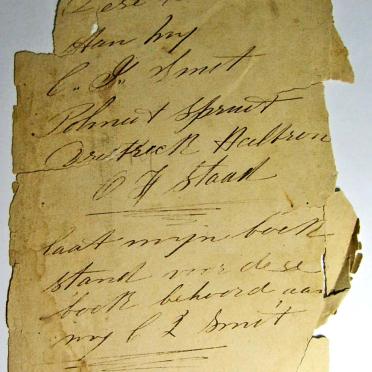 Aan my
C. J. Smit
Spruit
Destreek Heilbron
O V Staad
laat mijn boek
stand voor dese
book behoord aan
my C J Smit